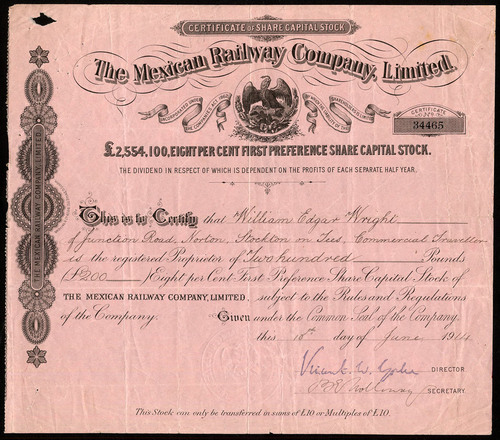 CERTIFICATE OF SHARE CAPITAL STOCK
The Mexican Railway Company, Limited.
INCORPORATED UNDER
THE COMPANIES ACT 1862
CERTIFICATE
No
34465
£2,554,100, EIGHT PER CENT FIRST PREFERENCE SHARE CAPITAL STOCK.
THE DIVIDEND IN RESPECT OF WHICH IS DEPENDENT ON THE PROFITS OF EACH SEPARATE HALF YEAR.
THE MEXICAN RAILWAY COMPANY, LIMITED
This is to Certify that William Edgar Wright
of Junction Road, Norton, Stockton on Tees, Commercial Traveller
is the registered Proprietor of Two hundred Pounds
(£200) Eight per Cent First Preference Share Capital Stock of
THE MEXICAN RAILWAY COMPANY, LIMITED, subject to the Rules and Regulations
of the Company. Given under the Common Seal of the Company.
this 10th day of June 1914
DIRECTOR
Holloway SECRETARY
This Stock can only be transferred in sums of £10 or Multiples of £10.